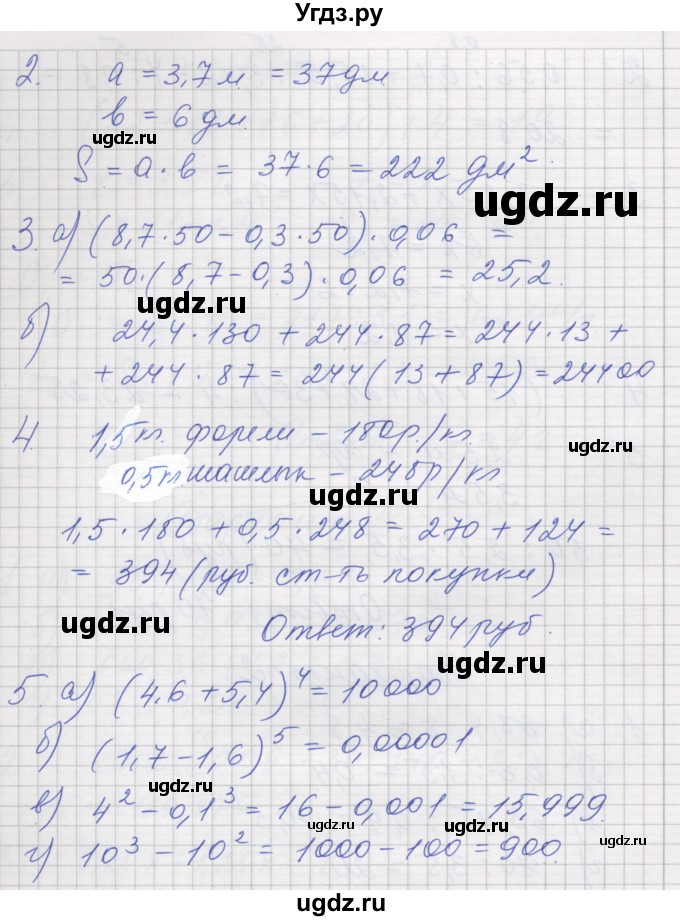 Угдз.ру
2. a = 3,7 м = 37 дм
b = 6 дм.
ugdz.ru
S = a · b = 37 · 6 = 222 дм².
ugdz.ru
3. а) (8,7 · 50 – 0,3 · 50) · 0,06 =
= 50 · (8,7 – 0,3) · 0,06 = 25,2.
ugdz.ru
б) 24,4 · 130 + 244 · 87 = 244 · 13 +
+ 244 · 87 = 244 (13 + 87) = 24400
ugdz.ru
4. 1,5 кг. форели – 180 р/кг
0,5 кг. шашлык – 248 р/кг
ugdz.ru
1,5 · 180 + 0,5 · 248 = 270 + 124 =
= 394 (руб. ст-ть покупки)
ugdz.ru
Ответ: 394 руб.
ugdz.ru
5. а) (4,6 + 5,4)⁴ = 10000
б) (1,7 – 1,6)⁵ = 0,00001
ugdz.ru
в) 4² – 0,1³ = 16 – 0,001 = 15,999.
ugdz.ru ugdz.ru
г) 10³ – 10² = 1000 – 100 = 900.
ugdz.ru